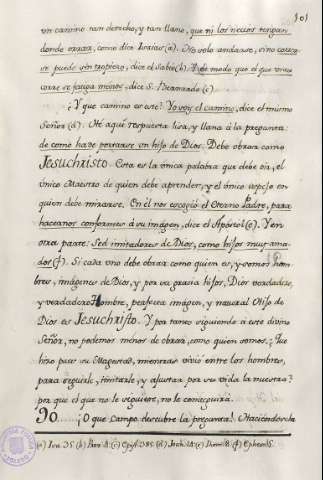 101
un camino tan derecho, y tan llano, que ni los necios tengan
donde errar, como dice Isaias (a). No solo andarse, sino correr
se puede sin tropiezo, dice el Sabio (b). De modo que el que vive
corre se fatiga menos, dice S. Bernardo (c).
¿Y que camino es este? Yo soy el camino, dice el mismo
Señor (d). Hé aqui respuesta lisa, y llana á la pregunta
de como ha de portarse un hijo de Dios. Debe obrar como
Jesuchristo. Esta es la única palabra que debe oir, el
único Maestro de quien debe aprender, y el único espejo en
quien debe mirarse. En él nos escogió el Eterno Padre, para
hacernos conformes á su imágen, dice el Apóstol (e). Y en
otra parte: Sed imitadores de Dios, como hijos muy ama-
dos (f). Si cada uno debe obrar como quien es, y somos hom-
bres, imágenes de Dios, y por su gracia hijos, Dios verdadero,
y verdadero Hombre, perfecta imágen, y natural Hijo de
Dios es Jesuchristo. Y por tanto siguiendo á este divino
Señor, no podemos menos de obrar, como quien somos. ¿Que
hizo pues su Magestad, mientras vivió entre los hombres,
para seguirle, imitarle, y ajustar por su vida la nuestra?
por que el que no le siguiere, no le conseguirá.
90..... ¡O que campo descubre la pregunta! Haciéndosela
(a) Isa. 35. (b) Prov. 4. (c) Epist. 385. (d) Joch. 14. (e) Rom. 8. (f) Ephes. 5.